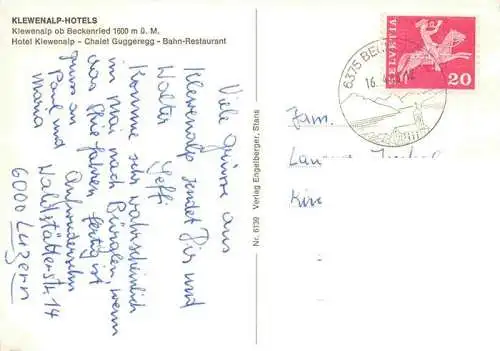 KLEWENALP-HOTELS
Klewenalp ob Beckenried 1600 m ü. M.
Hotel Klewenalp – Chalet Guggeregg – Bahn-Restaurant
Viele Grüsse aus
Klewenalp sendet Dir und
Walter
Komme sehr wahrscheinlich
im Mai nach Bürglen, wenn
das Skifahren fertig ist
Gruss an Aufwiedersehn
Paul und Waldstätterstr. 14
Maria 6000 Luzern
Nr. 6139 Verlag Engelberger, Stans
HELVETIA
20
6375
16.
Fam.